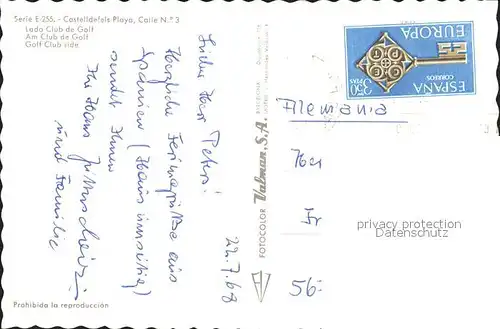 Serie E-255. - Castelldefels Playa, Calle N.º 3
Lado Club de Golf
Am Club de Golf
Golf Club side
Lieber Herr Peters!
Herzliche Feriengrüße aus
Spanien (Haus
sendet Ihnen
Ihr Hans
und Familie
22.7.68
Prohibida la reproducción
FOTOCOLOR Valman, S.A.
EUROPA
CORREOS
ESPAÑA
3,50
PTAS
Alemania
Her
Fr
56-
privacy protection
Datenschutz